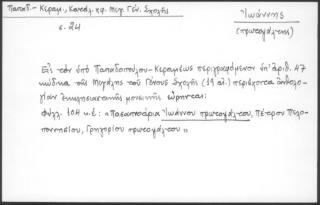 Παπαδ.- Κεραμ., Κατάλ. κφ. Μεγ. Γέν. Σχολῆς
Ἰωάννης
(πρωτοψάλτης)
σ. 24
Εἰς τὸν ὑπὸ Παπαδοπούλου-Κεραμέως περιγραφόμενον ὑπ' ἀριθ. 47
κώδικα τῆς Μεγάλης τοῦ Γένους Σχολῆς (19 αἰ.) περιέχοντα ἀνθολο-
γίαν ἐκκλησιαστικῆς μουσικῆς εὕρηνται:
Φύλλ. 104 κ.ἑ.: «Πασαπνοάρια Ἰωάννου πρωτοψάλτου, Πέτρου Πελο-
ποννησίου, Γρηγορίου πρωτοψάλτου»